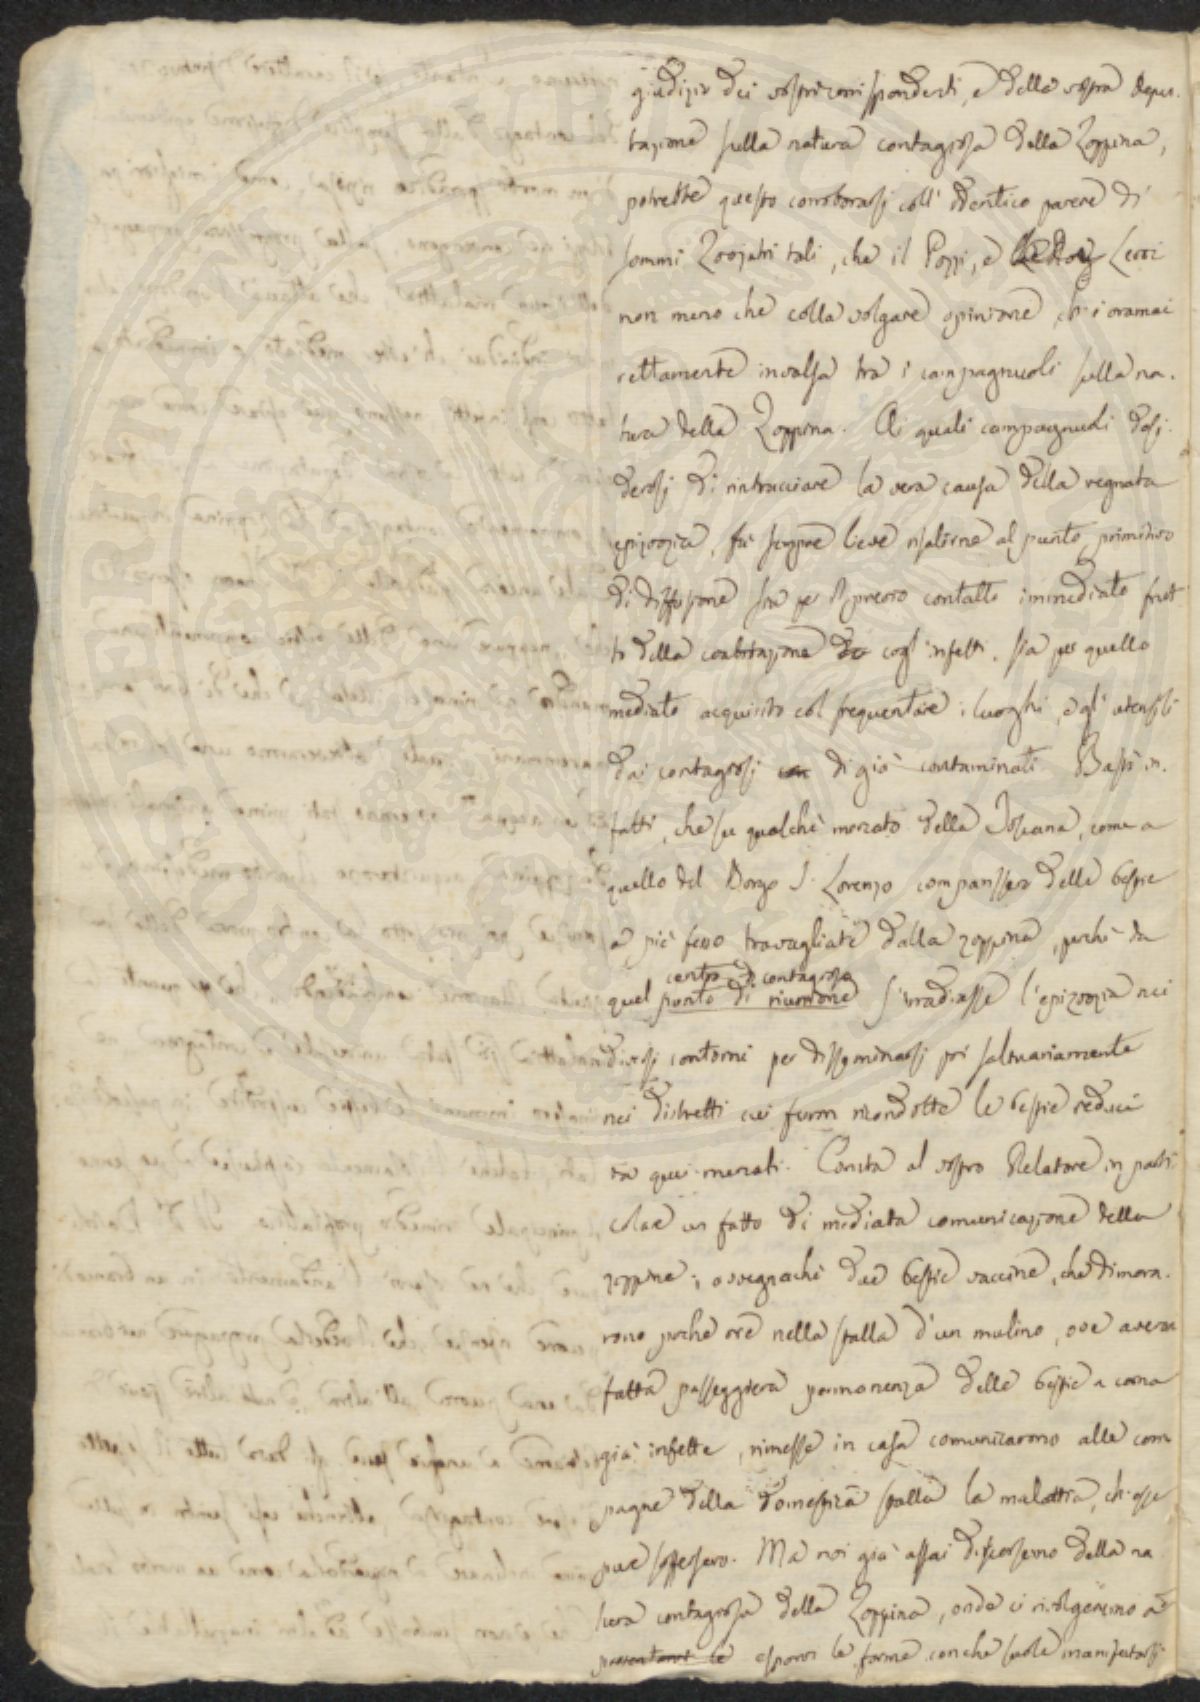 giudizio dei vostri corrispondenti, e della vostra depu-
tazione sulla natura contagiosa della Zoppina,
potrebbe questo corroborarsi coll' identico parere di
sommi Zoojatri tali, che il Pozzi, e Leroi
non meno che colla volgare opinione, ch'è oramai
rettamente invalsa tra i campagnuoli sulla na-
tura della Zoppina. Ai quali campagnuoli desi-
derosi di rintracciare la vera causa della regnata
epizoozia, fu sempre lieve risalirne al punto primitivo
di diffusione sia per il preciso contatto immediato frut-
to della coabitazione cogl'infetti, sia per quello
mediato acquisito col frequentare i luoghi, e gl'utensili
dai contagiosi di già contaminati. Bastò in-
fatti, che su qualche mercato della Toscana, come a
quello del Borgo S. Lorenzo comparissero delle bestie
a piè fesso travagliate dalla zoppina, perchè da
centro di contagioso
quel punto di riunione s'irradiasse l'epizoozia nei
diversi contorni per disseminarsi poi saltuariamente
nei distretti cui furon ricondotte le bestie reduci
da quei mercati. Consta al vostro Relatore in parti-
colar un fatto di mediata comunicazione della
zoppina; ovvegnachè due bestie vaccine, che dimora-
rono poche ore nella stalla d'un mulino, ove aveva
fatta passeggiera permanenza delle bestie a corna
già infette, rimesse in casa comunicarono alle com-
pagne della domestica stalla la malattia, ch'esse
pure soffersero. Ma noi già assai discorremmo della na-
tura contagiosa della Zoppina, onde ci rivolgeremo a
esporvi le forme con che suole manifestarsi